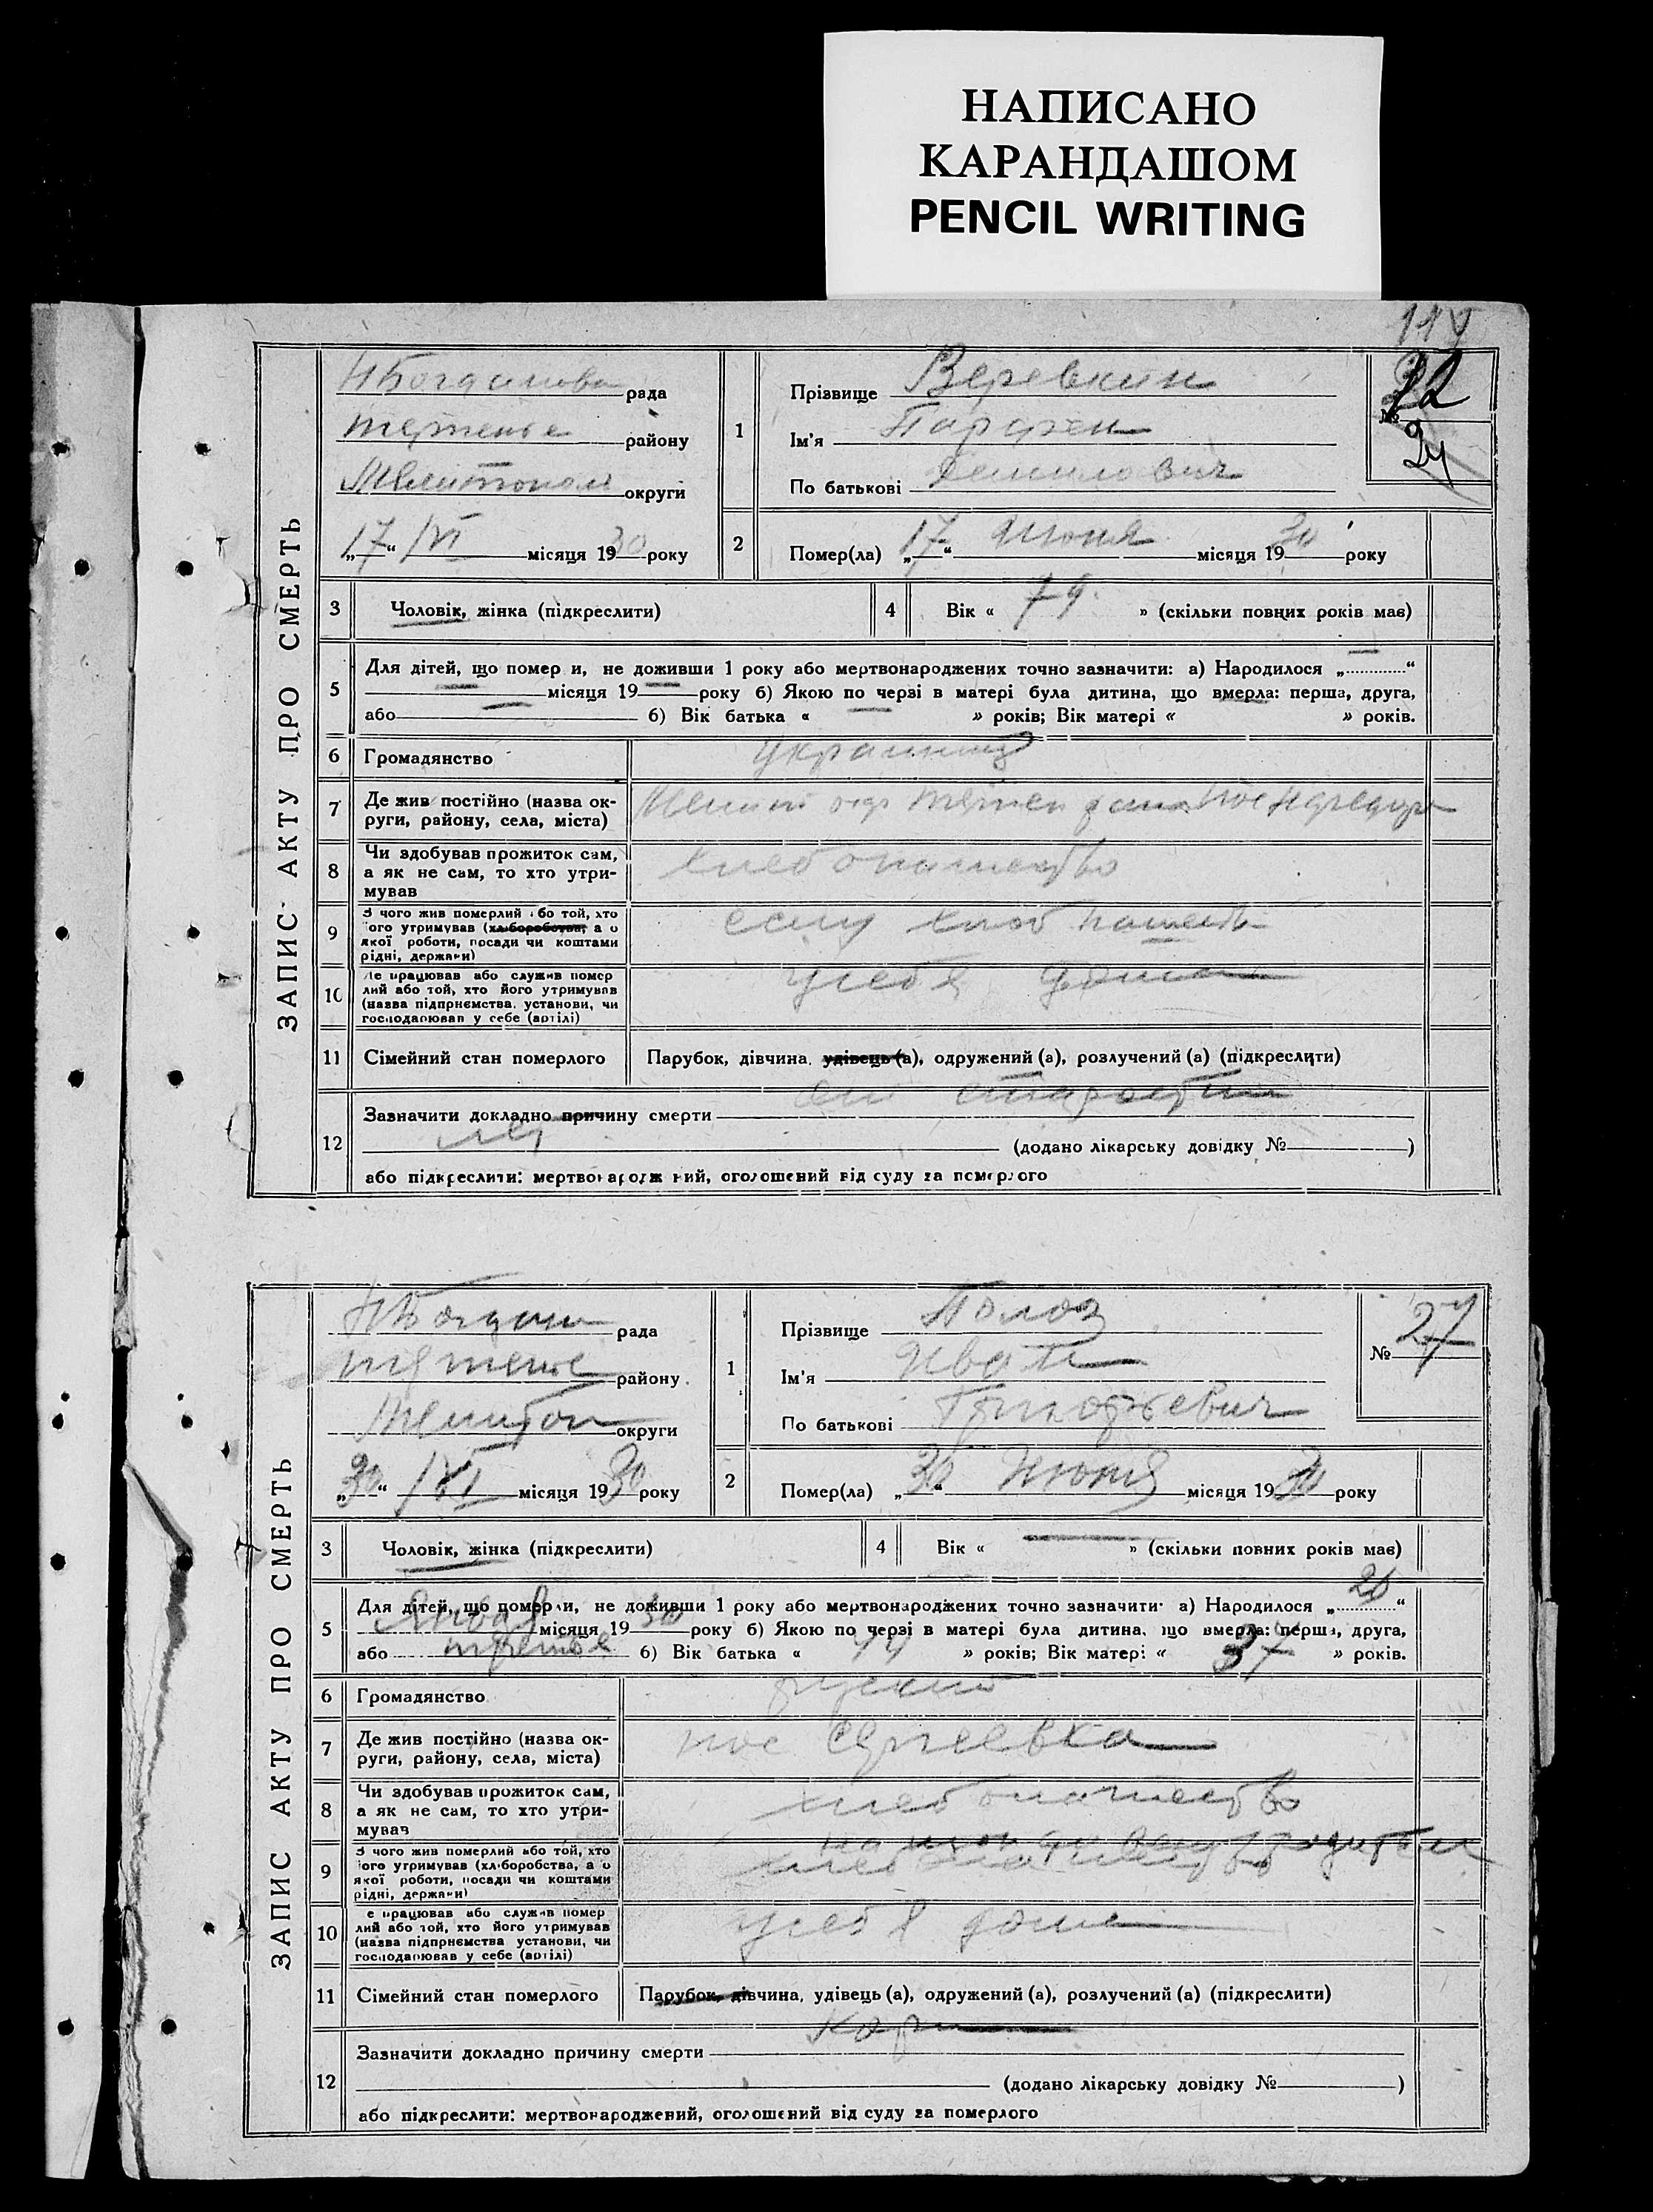 НАПИСАНО
КАРАНДАШОМ
PENCIL WRITING
ЗАПИС АКТУ ПРО СМЕРТЬ
рада
району
округи
„17“ /VI місяця 1930 року
1
Прізвище Веревкин
Ім'я Парфен
По батькові Данилович
№ 24
2
Помер(ла) „17“ Июня місяця 1930 року
3 Чоловік, жінка (підкреслити)
4 Вік « 79 » (скільки повних років має)
5 Для дітей, що помер и, не доживши 1 року або мертвонароджених точно зазначити: а) Народилося „ “
місяця 19 року б) Якою по черзі в матері була дитина, що вмерла: перша, друга,
або б) Вік батька « » років; Вік матері « » років.
6 Громадянство
7 Де жив постійно (назва ок-
руги, району, села, міста)
8 Чи здобував прожиток сам,
а як не сам, то хто утри-
мував
хлебопашество
9 З чого жив померлий або той, хто
його утримував (хліборобства, а о
якої роботи, посади чи коштами
рідні, держави)
10 Де працював або служив помер
лий або той, хто його утримував
(назва підприємства, установи, чи
господарював у себе (артілі)
у себя дома
11 Сімейний стан померлого Парубок, дівчина, удівець (а), одружений (а), розлучений (а) (підкреслити)
12 Зазначити докладно причину смерти от старости
лет (додано лікарську довідку № )
або підкреслити: мертвонароджений, оголошений від суду за померлого
ЗАПИС АКТУ ПРО СМЕРТЬ
рада
району
округи
„30“ /VI місяця 1930 року
1
Прізвище Полоз
Ім'я Иван
По батькові
№ 27
2
Помер(ла) „30“ Июня місяця 1930 року
3 Чоловік, жінка (підкреслити)
4 Вік « » (скільки повних років має)
5 Для дітей, що померли, не доживши 1 року або мертвонароджених точно зазначити: а) Народилося „ “
Января місяця 1930 року б) Якою по черзі в матері була дитина, що вмерла: перша, друга,
або третья б) Вік батька « 44 » років; Вік матері « 37 » років.
6 Громадянство русский
7 Де жив постійно (назва ок-
руги, району, села, міста)
пос Сергеевка
8 Чи здобував прожиток сам,
а як не сам, то хто утри-
мував
хлебопашество
9 З чого жив померлий або той, хто
його утримував (хліборобства, а о
якої роботи, посади чи коштами
рідні, держави)
10 е працював або служив помер
лий або той, хто його утримував
(назва підприємства установи, чи
господарював у себе (артілі)
у себя дома
11 Сімейний стан померлого Парубок, дівчина, удівець (а), одружений (а), розлучений (а) (підкреслити)
12 Зазначити докладно причину смерти
(додано лікарську довідку № )
або підкреслити: мертвонароджений, оголошений від суду за померлого